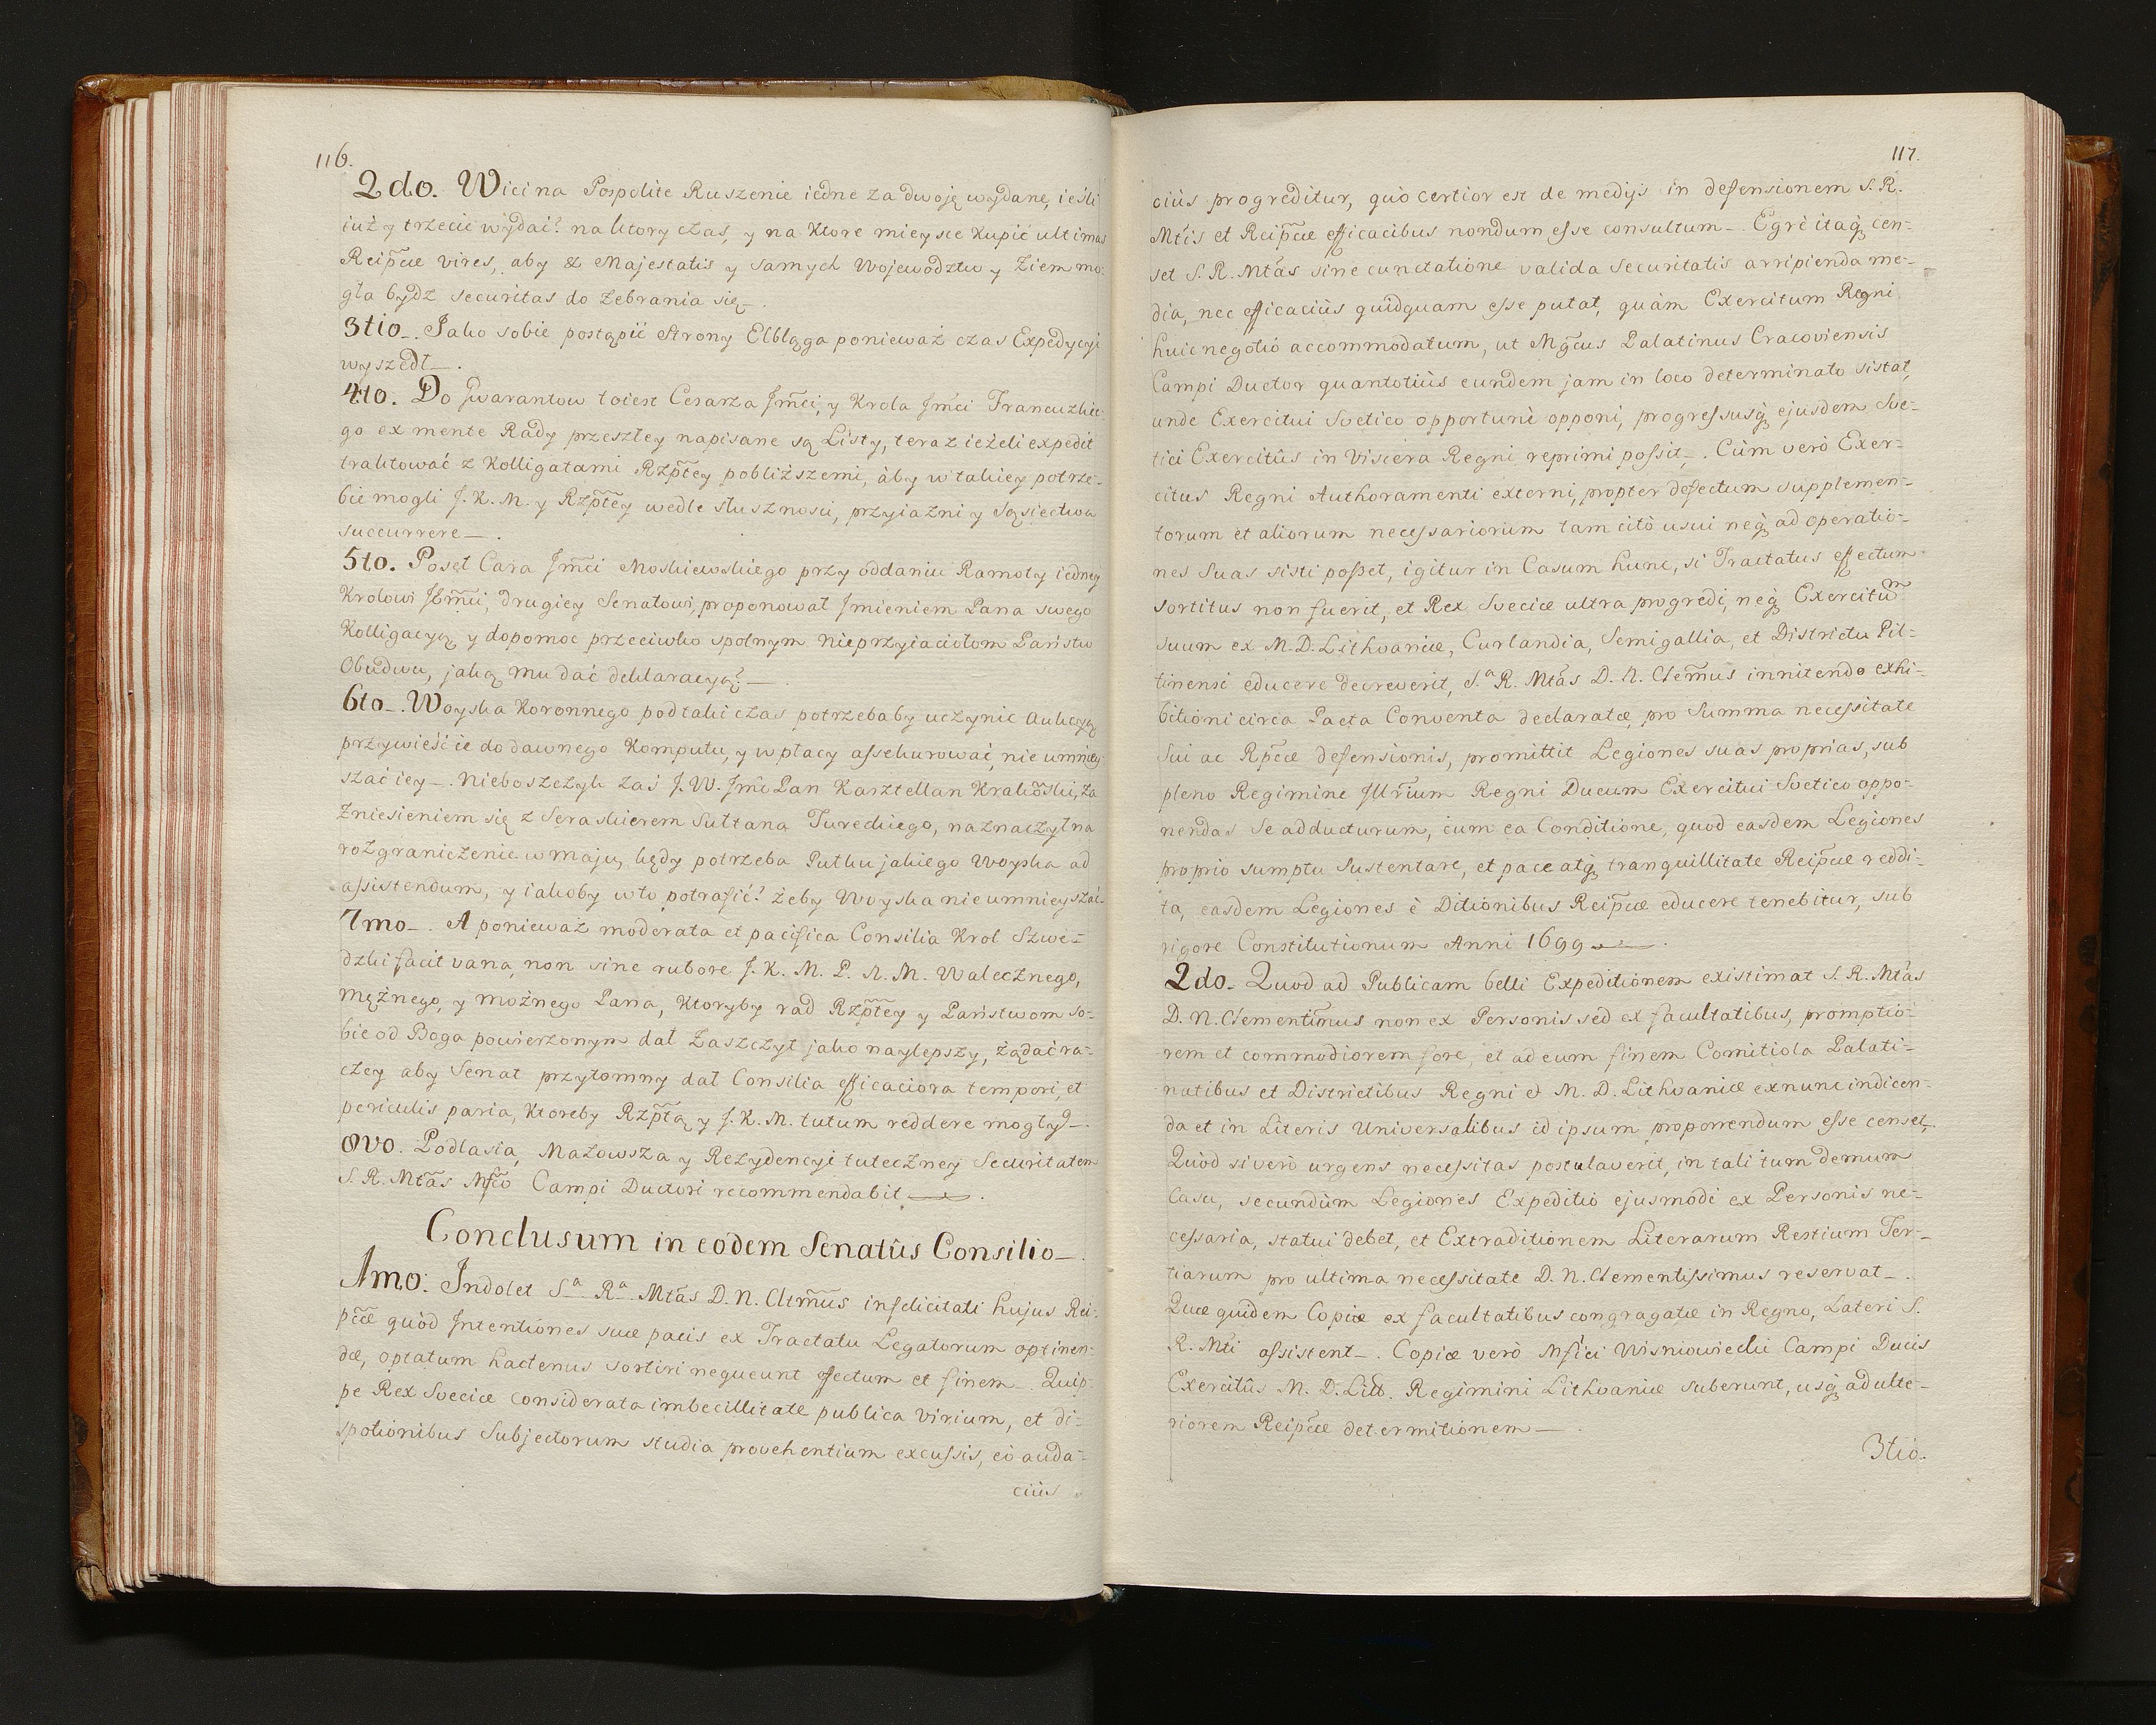 116.
2do. Wici na Pospolite Ruszenie iedne za dwoię wydane, ieśli
iuż y trzecie wydać? na ktory czas, y na ktore mieysce kupić ultimas
Reip̃cæ vires, aby & Majestatis y samych Wojewodztw y Ziem mo-
gła bydz securitas do zebrania się_.
3tio_. Jako sobie postąpić strony Elbląga ponieważ czas Expedycyi
wyszedł_.
4to. Do Gwarantow toiest Cesarza Jm̃ci, y Krola Jm̃ci Francuzkie-
go ex mente Rady przeszłey napisane są Listy, teraz ieżeli expedit
traktować z Kolligatami Rzp̃tey pobliższemi, aby w takiey potrze-
bie mogli J. K. M. y Rzp̃tey wedle słusznosci, przyiazni y Sąsiectwa
succurrere_.
5to. Poseł Cara Jm̃ci Moskiewskiego przy oddaniu Ramoty iedney
Krolowi Jm̃ci, drugiey Senatowi, proponował Jmieniem Pana swego
Kolligacyą y dopomoc przeciwko spolnym nieprzyiaciołom Państw
Obudwu, jaką mu dać deklaracyą?_.
6to_. Woyska Koronnego pod taki czas potrzeba by uczynic aukcyą
przywieść ie do dawnego Komputu, y w płacy assekurować, nie umniey-
szać iey_. Nieboszczyk zaś J. W. Jm̃ Pan Kasztellan Krakõski, za
zniesieniem się z Seraskierem Sułtana Tureckiego, naznaczył na
rozgraniczenie w maju, kędy potrzeba Pułku jakiego Woyska ad
assistendum, y iakoby w to potrafić? żeby Woyska nie umnieyszać_
7mo_. A ponieważ moderata et pacifica Consilia Krol Szwe-
dzki facit vana, non sine rubore J. K. M. P. N. M. Walecznego,
mężnego, y możnego Pana, ktoryby rad Rzp̃tey y Państwom so-
bie od Boga powierzonym dał zaszczyt jako naylepszy, żądać ra-
czey aby Senat przytomny dał Consilia efficaciora tempori, et
periculis paria, ktoreby Rzp̃tą y J. K. M. tutum reddere mogły_.
8vo. Podlasia, Mazowsza y Rezydencyi tuteczney Securitatem
S. R. Mtãs Mf̃co Campi Ductori recommendabit_.
Conclusum in eodem Senatûs Consilio_.
1mo. Indolet Sᵃ Rᵃ Mtãs D. N. Clem̃us infelicitati hujus Rei-
p̃cæ quòd Intentiones suæ pacis ex Tractatu Legatorum optinen-
dæ, optatum hactenus sortiri nequeunt effectum et finem_ Quip-
pe Rex Sveciæ considerata imbecillitate publica virium, et di-
spotionibus Subjectorum studia provehentium excussis, eò auda-
ciùs
117.
ciùs progreditur, quò certior est de medijs in defensionem S. R.
Mtis et Reip̃cæ efficacibus nondum esse consultum_. Egrè itaq̨ cen-
set S. R. Mtãs sine cunctatione valida securitatis arripienda me-
dia, nec efficaciùs quidquam esse putat, quàm Exercitum Regni
huic negotiò accommodatum, ut Mg̃cus Palatinus Cracoviensis
Campi Ductor quantotiùs eundem jam in loco determinato sistat,
unde Exercitui Svetico opportunè opponi, progressusq̨ ejusdem Sve-
tici Exercitûs in viscera Regni reprimi possit_. Cùm verò Exer-
citus Regni Authoramenti externi, propter defectum supplemen-
torum et aliorum necessariorum tam citò usui neq̨ ad operatio-
nes suas sisti posset, igitur in Casum hunc, si Tractatus effectum
sortitus non fuerit, et Rex Sveciæ ultra progredi, neq̨ Exercitum
suum ex M. D. Lithvaniæ, Curlandia, Semigallia, et Districtu Pil-
tinensi educere decreverit, S.ᵃ R. Mtãs D. N. Clem̃us innitendo exhi-
bitioni circa Pacta Conventa declaratæ, pro summa necessitate
sui ac Rp̃cæ defensionis, promittit Legiones suas proprias, sub
pleno Regimine Jllr̃ium Regni Ducum Exercitui Svetico oppo-
nendas se adducturum, cum ea Conditione, quod easdem Legiones
proprio sumptu sustentare, et pace atq̨ tranquillitate Reip̃cæ reddi-
ta, easdem Legiones è Ditionibus Reip̃cæ educere tenebitur, sub
rigore Constitutionum Anni 1699_.
2do_ Quod ad Publicam belli Expeditionem existimat S. R. Mtãs
D. N. Clementim̃us non ex Personis sed ex facultatibus, promptio-
rem et commodiorem fore, et ad eum finem Comitiola Palati-
natibus et Districtibus Regni & M. D. Lithvaniæ exnunc indicen-
da et in Literis Universalibus id ipsum proponendum esse censet,
Quòd si verò urgens necessitas postulaverit, in tali tum demum
Casu, secundùm Legiones Expeditio ejusmodi ex Personis ne-
cessaria, statui debet, et Extraditionem Literarum Restium Ter-
tiarum pro ultima necessitate D. N. Clementissimus reservat_.
Quæ quidem Copiæ ex facultatibus congragatæ in Regno, Lateri S.
R. Mti assistent_. Copiæ verò Mfici Wisniowiecki Campi Ducis
Exercitûs M. D. Litt. Regimini Lithvaniæ suberunt, usq̨ ad ulte-
riorem Reip̃cæ determitionem_.
3tiò.